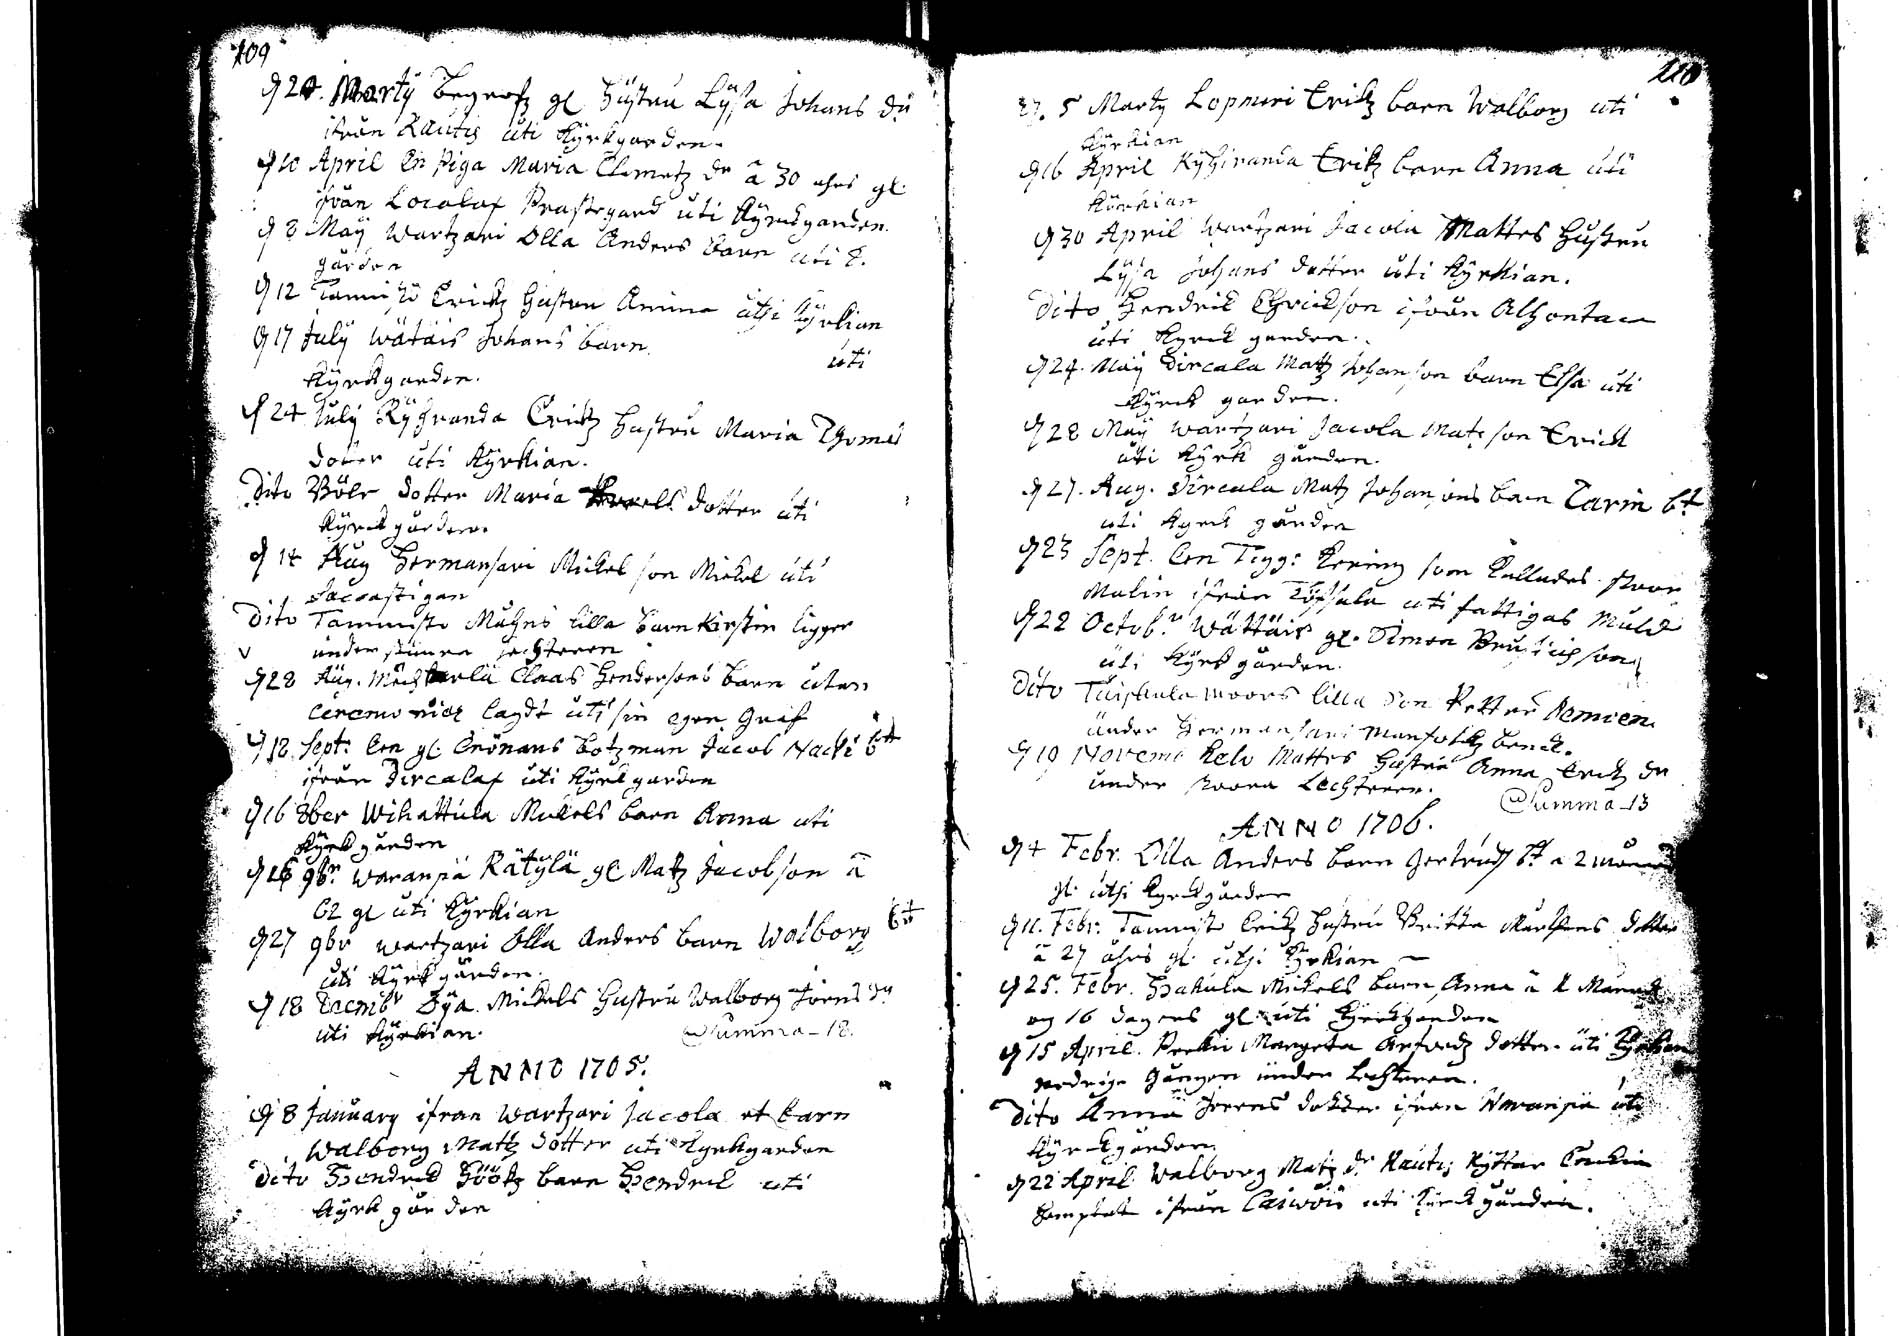 109
d 24. Marty Begrofz gl Hustru Lysa Johans dr
ifrån Rautis uti Kyrkgården.
d 10 April En Piga Maria Clemetz dr å 30 åhrs gl.
ifrån Localax Prästegård uti Kyrckgården.
d 8 Maÿ Wartzari Olla Anders barn uti K.
gården
d 12 Tammisto Erickz hustru Anna uthi Kyrkian
d 17 July Wätäis Johans barn uti
Kyrckgården.
d 24 July Ryhranda Erickz hustru Maria Thomas
dotter uti Kyrkian.
Dito Böle dotter Maria dotter uti
Kyrckgården.
d 14 Aug Hermansari Mickel son Mickel uti
Sacrastigan
Dito Tammisto Matzes lilla barn Kirstin ligger
under stoora lechteren
d 28 Aug. Claas Hendersons barn utan
ceremonier lagdt uti sin egen Graf
d 18 Sept: Een gl. Cronans botzman Jacob Nacki
ifrån Dircalax uti Kyrkgården
d 16 8ber Wihattula Mickels barn Anna uti
Kyrkgården
d 16 9br. waranpä Rätylä gl Matz Jacobson å
62 gl uti Kyrkian
d 27 9br wartzari Olla Anders barn Walborg
uti Kyrkgården.
d 18 Decembr Öya Mickels Hustru Walborg Jörens dr
uti Kyrkian. Summa - 18.
ANNO 1705.
d 8 January ifrån Wartzari Jacola et barn
Walborg Matz dotter uti Kyrkgården
Dito Hendrick Höökz barn Hendrik uti
Kyrkgården
110
d. 5 Marty Lopmeri Erikz barn Walborg uti
Kyrkian
d 16 April Kyhiranda Erikz barn Anna uti
Kyrkian
d 30 April Wartzari Jacola Mattes Hustru
Lysa Johans dotter uti Kyrkian.
Dito Hendrik Ehrickson ifrån Alhontaca
uti Kyrck gården.
d 24. Maÿ Dircala Matz Johanson barn Elsa uti
Kyrck gården.
d 28 Maÿ wartzari Jacola Mats son Erick
uti Kyrk gården.
d 27. Aug. Dircala Matz Johansons barn Carin
uti Kyrck gården
d 23 Sept. Een Tigg: Kering som kallades stoor
Malin ifrån Töfsala uti fattigas Muld
d 22 Octob.r Wättäis gl. Simon Brusiusson
uti Kyrkgården.
Dito Taipkala moors lilla Son Petter
under Hermansari Mansfolckz benck.
d 19 Novemb Kelo Mattes Hustru Anna Erickz dr
under stoora Lechteren. Summa - 13
ANNO 1706.
d 4 Febr. Olla Anders barn Gertrud a 2
gl. uthi Kyrckgården
d 11. Febr. Tammisto Erikz hustru Britta Marthens dotter
å 27 åhrs gl. uthi Kyrkian
d 25. Febr. Hakula Mickels barn Anna å
og 16 dagars gl. uti Kyrckgården
d 15 April. Margeta Arfvedz dotter uti Kyrkian
nedrige Gången under Lechteren.
Dito Anna Jörens dotter ifrån Waranpä uti
Kyrckgården.
d 22 April Walborg Matz dr Rautis Ryttar
ifrån Caiwois uti Kyrckgården.